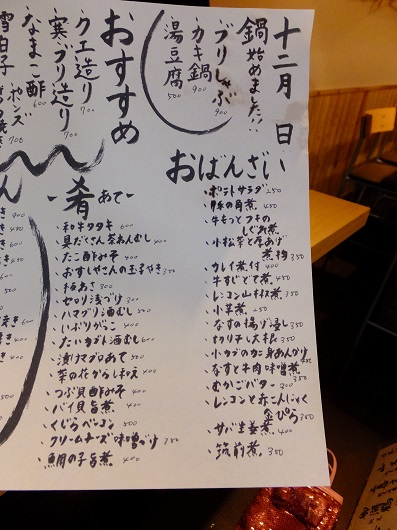 十二月 日
鍋始めました!!
・ブリしゃぶ 900
・カキ鍋 900
・湯豆腐 500
おすすめ
・クエ造り 700
・寒ブリ造り 700
・なまこ酢 600
ポンズ
おばんざい
・ポテトサラダ 250
・豚の角煮 450
・牛もつとフキの
しぐれ煮
・小松菜と厚あげ
煮物 350
・カレイ煮付 400
・牛すじどて煮 450
・レンコン山椒煮 350
・小芋煮 250
・なすの揚げ浸し 350
・切り干し大根 350
・小カブのカニ身あんかけ
・なすと牛肉味噌煮
・むかごバター 300
・レンコンと赤こんにゃく
金ぴら 350
・サバ生姜煮 400
・筑前煮 350
-肴あて-
・和牛タタキ 600
・具だくさん茶わんむし 400
・たこ酢みそ 400
・おすしやさんの玉子やき 350
・梅あさ 300
・セロリ浅づけ 300
・ハマグリ酒むし 500
・いぶりがっこ 400
・たいカブト酒むし 600
・漬けマグロあて 500
・菜の花からし和え 400
・つぶ貝酢みそ 400
・バイ貝旨煮 400
・くじらベーコン 500
・クリームチーズ味噌づけ 350
・鯛の子旨煮 400